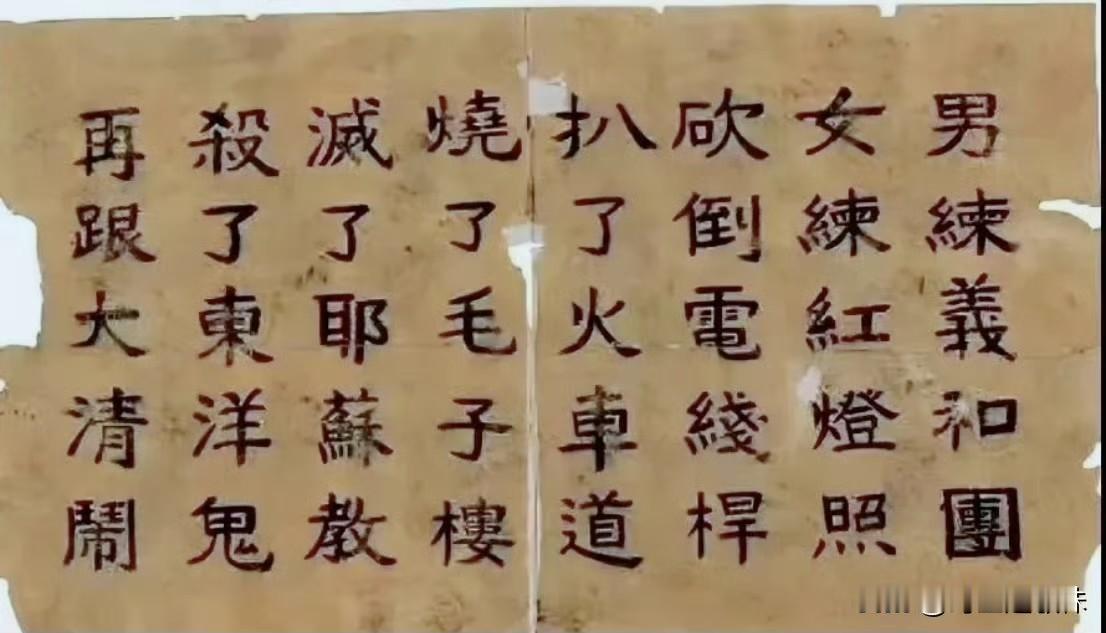 男練義和團
女練紅燈照
砍倒電綫桿
扒了火車道
燒了毛子樓
滅了耶蘇教
殺了東洋鬼
再跟大清鬧